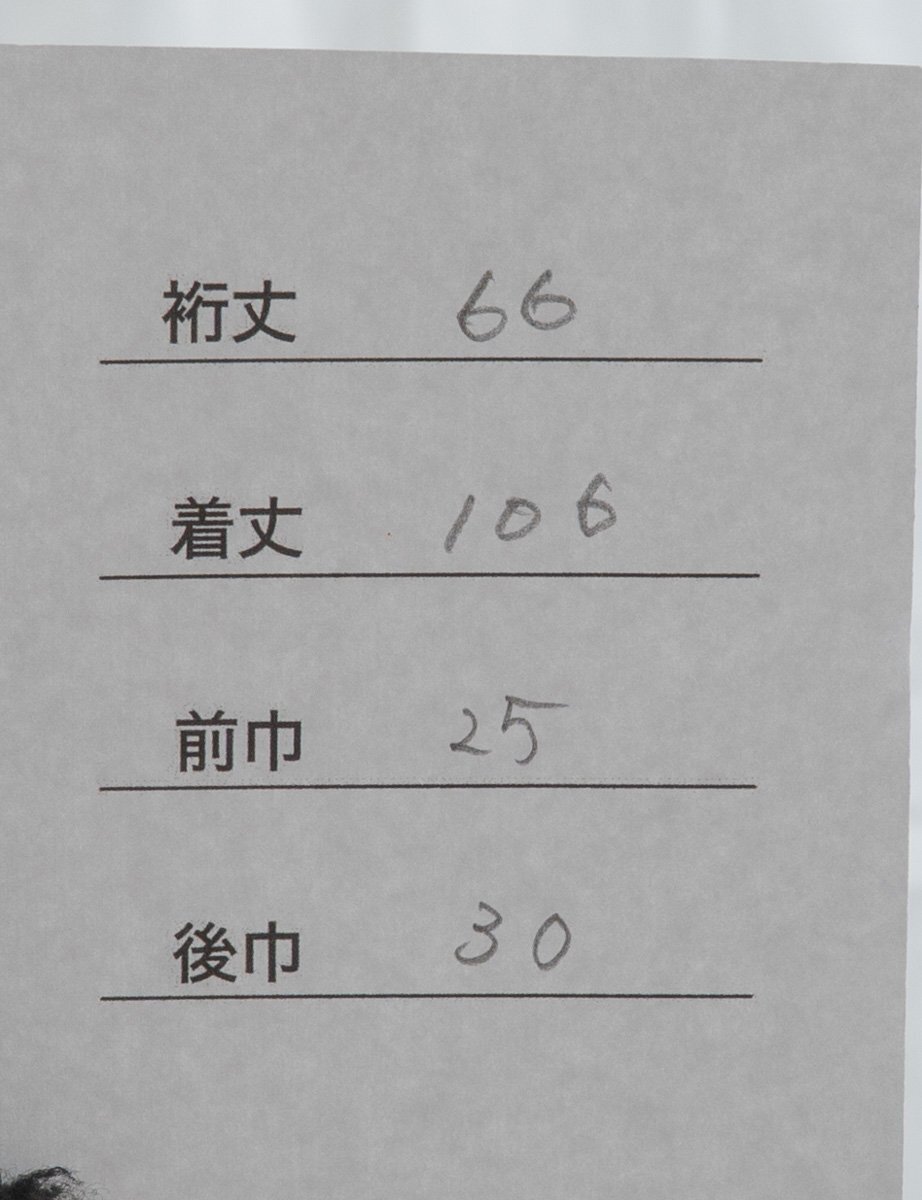 裄丈 66
着丈 106
前巾 25
後巾 30